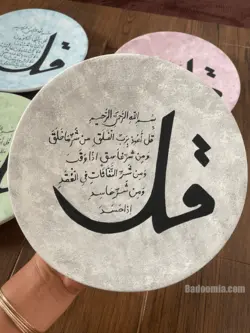 بسم الله الرحمن الرحیم
قل اعوذ برب الفلق من شر ما خلق
و من شر غاسق اذا وقب
و من شر النفاثات فی العقد
و من شر حاسد
اذا حسد
قل
قل
Badoomia.com